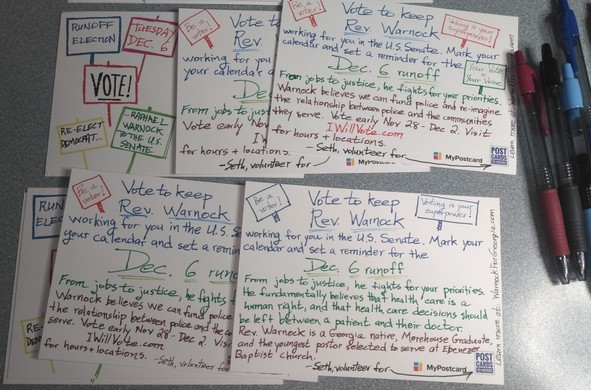 RUNOFF
ELECTION
TUESDAY
DEC. 6
VOTE!
RE-ELECT
DEMOCRAT...
RAPHAEL
WARNOCK
TO THE U.S.
SENATE
Be a
voter!
Vote to
Rev.
working for you
your calendar a
De
From jobs to just
Vote early Nov
I W
for hours + locations.
-Seth, volunteer for
Be a
voter!
Voting is your
superpower!
Vote to keep
Rev. Warnock
working for you in the U.S. Senate. Mark your
calendar and set a reminder for the
Dec. 6 runoff
Your Vote
Your Voice
From jobs to justice, he fights for your priorities.
Warnock believes we can fund police and re-imagine
the relationship between police and the communities
they serve. Vote early Nov 28 - Dec 2. Visit
IWillVote.com
for hours + locations.
-Seth, volunteer for
MyPostcard
POST
CARDS
Learn more
RUN
ELE
RE-
DEM
Be a
voter!
Vote to keep
Rev. Warnock
working for you in the U.S. S
your calendar and set a remin
Dec. 6 runo
From jobs to justice, he fights
Warnock believes we can fund police
the relationship between police and the co
serve. Vote early Nov 28 - Dec 2.
IWillVote.com
for hours + locations.
-Seth, volunteer
Be a
voter!
Voting is your
superpower!
Vote to keep
Rev. Warnock
working for you in the U.S. Senate. Mark your
calendar and set a reminder for the
Dec. 6 runoff
From jobs to justice, he fights for your priorities.
He fundamentally believes that health care is a
human right, and that health care decisions should
be left between a patient and their doctor.
Rev. Warnock is a Georgia native, Morehouse Graduate,
and the youngest pastor selected to serve at Ebenezer
Baptist Church.
-Seth, volunteer for
MyPostcard
POST
CARDS
Learn more at WarnockForGeorgia.com